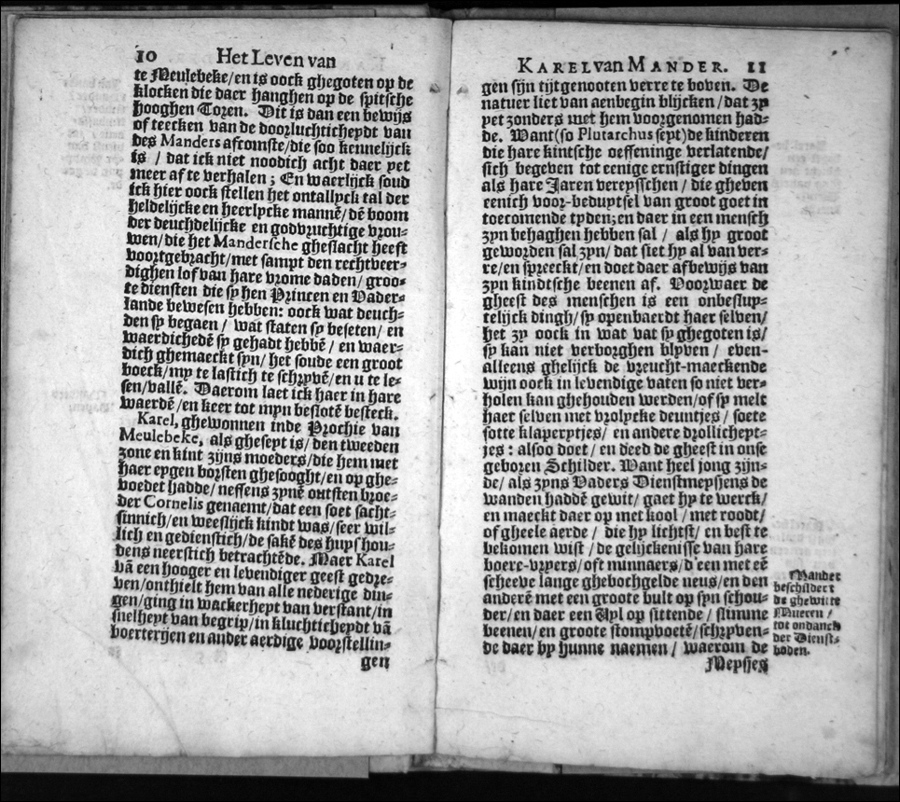 10 Het Leven van
te Meulebeke/en is oock ghegoten op de
klocken die daer hanghen op de spitsche
hooghen Toren. Dit is dan een bewijs
of teecken van de doorluchticheydt van
des Manders afcomste/die soo kennelijck
is / dat ick niet noodich acht daer yet
meer af te verhalen ; En waerlijck soud
ick hier oock stellen het ontallyck tal der
heldelijcke en heerlycke mannē/ dē boom
der deuchdelijcke en godvruchtige vrou-
wen/die het Mandersche gheslacht heeft
voortgebracht/met sampt den rechtveer-
dighen lof van hare vrome daden/ groo-
te diensten die sy hen Princen en Vader-
lande bewesen hebben: oock wat deuch-
den sy begaen / wat staten sy beseten/ en
waerdichedē sy gehadt hebbē / en waer-
dich ghemaeckt syn/ het soude een groot
boeck/my te lastich te schryvē/en u te le-
sen/vallē. Daerom laet ick haer in hare
waerdē /en keer tot mijn beslotē besteck.
Karel, ghewonnen inde Prochie van
Meulebeke, als gheseyt is/ den tweeden
zone en kint zijns moeders/die hem met
haer eygen borsten ghesooght/en op ghe-
voedet hadde/ neffens zynē outsten broe-
der Cornelis genaemt/dat een soet sacht-
sinnich/en weeslijck kindt was/seer wil-
lich en gedienstich/de sakē des huyshou-
dens neerstich betrachtēde. Maer Karel
vā een hooger en levendiger geest gedre-
ven/onthielt hem van alle nederige din-
gen/ging in wackerheyt van verstant/in
snelheyt van begrip/in kluchticheydt vā
boerterijen en ander aerdige voorstellin-
gen
KAREL van MANDER. 11
gen sijn tijtgenooten verre te boven. De
natuer liet van aenbegin blijcken/dat zy
yet zonders met hem voorgenomen had-
de. Want (so Plutarchus seyt) de kinderen
die hare kintsche oeffeninge verlatende/
sich begeven tot eenige ernstiger dingen
als hare Jaren vereysschen / die gheven
eenich voor-beduytsel van groot goet in
toecomende tyden; en daer in een mensch
zyn behaghen hebben sal / als hy groot
geworden sal zyn/ dat siet hy al van ver-
re/en spreeckt/en doet daer afbewijs van
zyn kindtsche beenen af. Voorwaer de
gheest des menschen is een onbesluy-
telijck dingh/ sy openbaerdt haer selven/
het zy oock in wat vat sy ghegoten is/
sy kan niet verborghen blyven / even-
alleens ghelijck de vreucht-maeckende
wijn oock in levendige vaten so niet ver-
holen kan ghehouden werden/of sy melt
haer selven met vrolycke deuntjes/ soete
sotte klaperytjes/ en andere drollicheyt-
jes : alsoo doet / en deed de gheest in onse
geboren Schilder. Want heel jong zijn-
de/ als zyns Vaders Dienstmeysjens de
wanden haddē gewit/ gaet hy te werck/
en maeckt daer op met kool / met roodt/
of gheele aerde / die hy lichtst/ en best te
bekomen wist /de gelijckenisse van hare
boere-vryers/oft minnaers/d'een met eē
scheeve lange ghebochgelde neus/en den
anderē met een groote bult op syn schou-
der/en daer een Uyl op sittende/ slimme
beenen/en groote stompvoetē/schryven-
de daer by hunne naemen / waerom de
Meysjes
Mander
beschildert
de ghewitte
Mueren /
tot ondanck
der Dienst-
boden.